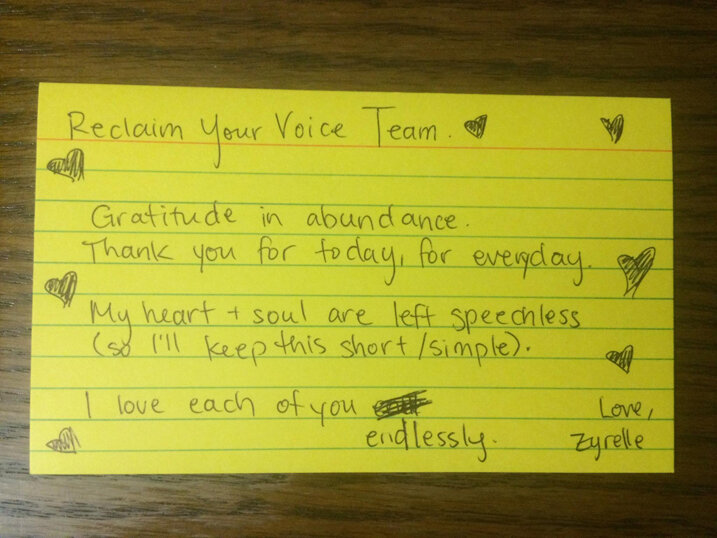 Reclaim Your Voice Team.
Gratitude in abundance.
Thank you for today, for everyday.
My heart + soul are left speechless
(so I'll keep this short/simple).
I love each of you
endlessly.
Love,
Zyrelle